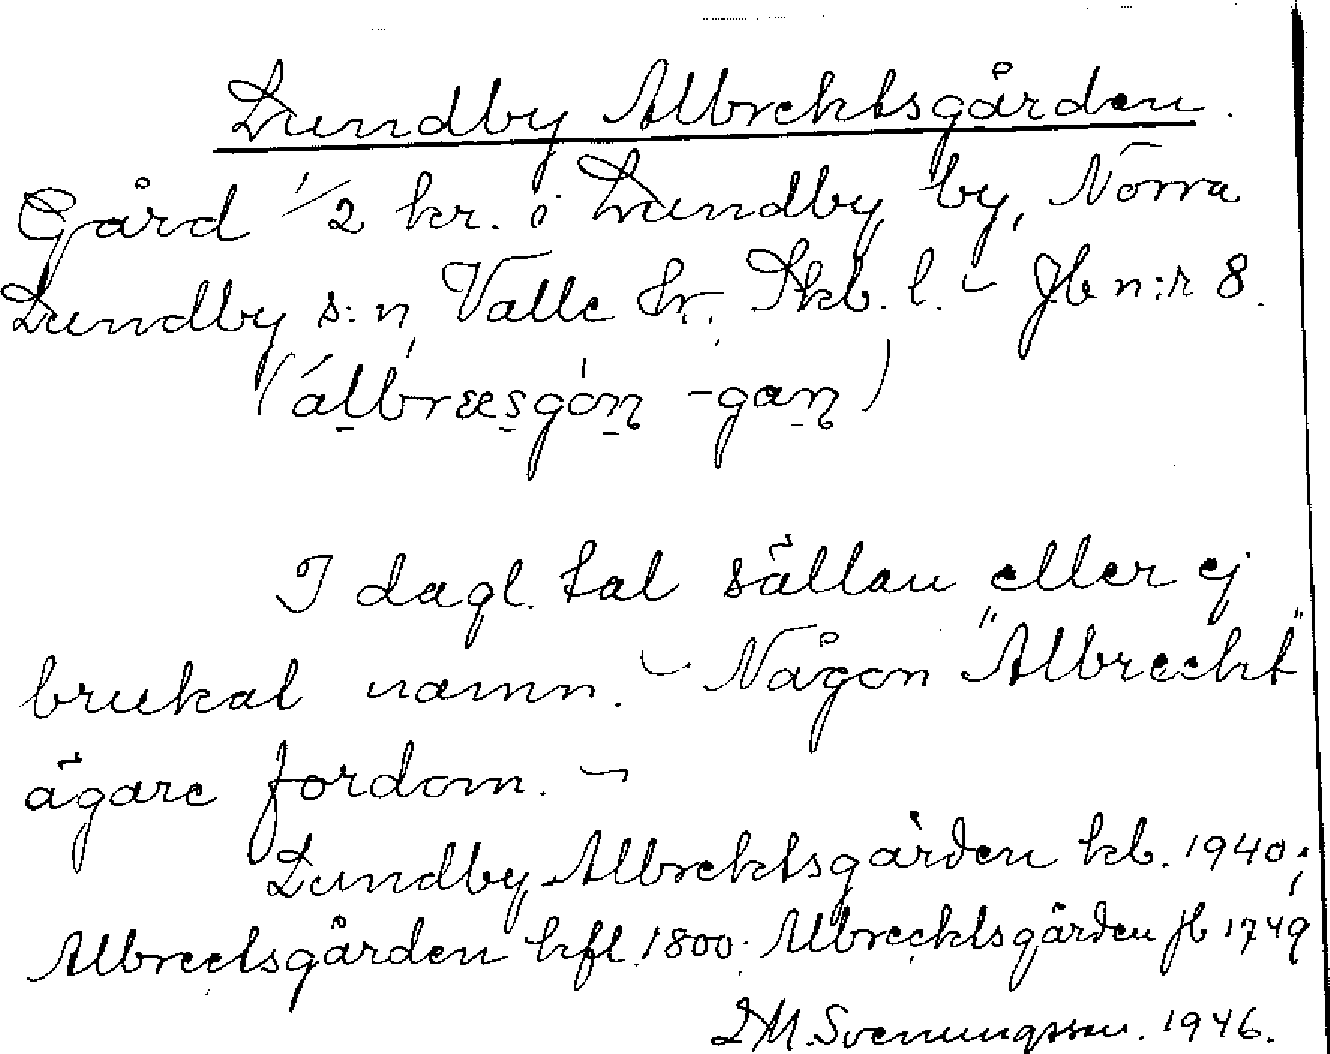 Lundby Albrektsgården.
Gård 1/2 kr. i Lundby by, Norra
Lundby s:n, Valle hr. Skb. l. - Jb n:r 8.
(álbræsgón -gan)
I dagl. tal sällan eller ej
brukat namn. - Någon "Albrecht"
ägare fordom. -
Lundby Albrektsgården kb. 1940;
Albrectsgården hfl. 1800; Albrechtsgården jb 1749
D M. Svenungsson. 1946.